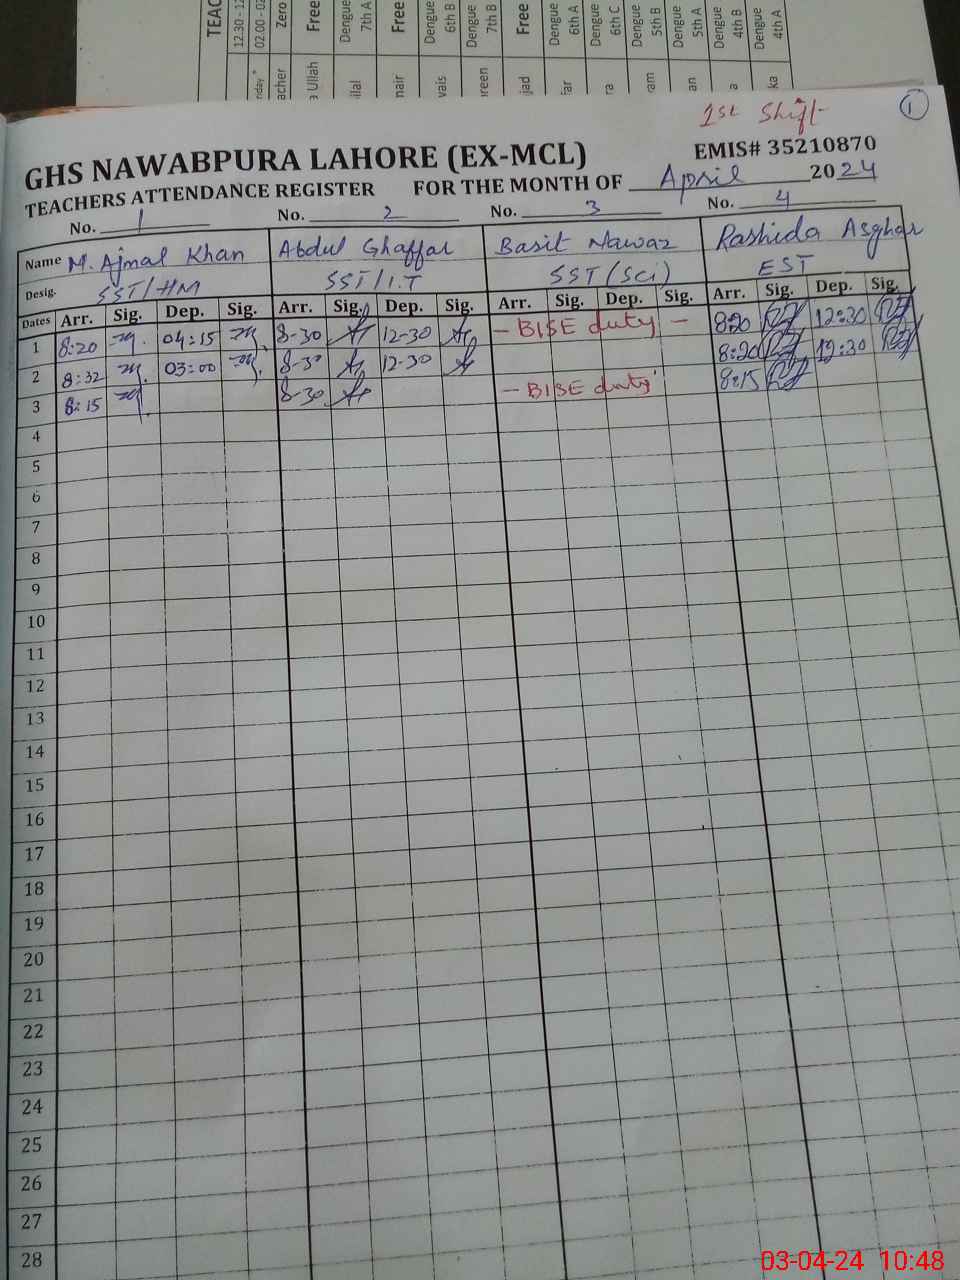 TEAC
12.30 - 12
02.00 - 02
nday "
acher Zero
a Ullah Free
ilal Dengue 7th A
mair Free
vais Dengue 6th B
reen Dengue 7th B
jad Free
far Dengue 6th A
ra Dengue 6th C
ram Dengue 5th B
an Dengue 5th A
a Dengue 4th B
ka Dengue 4th A
1st Shift 1
GHS NAWABPURA LAHORE (EX-MCL) EMIS# 35210870
TEACHERS ATTENDANCE REGISTER FOR THE MONTH OF April 2024
No. 1 No. 2 No. 3 No. 4
Name M. Ajmal Khan Abdul Ghaffar Basit Nawaz Rashida Asghar
Desig. SST/HM SST/I.T SST (Sci) EST
Dates Arr. Sig. Dep. Sig. Arr. Sig. Dep. Sig. Arr. Sig. Dep. Sig. Arr. Sig. Dep. Sig.
1 8:20 04:15 8-30 12-30 - BISE duty - 8:20 12:30
2 8:32 03:00 8-30 12-30 8:20 12:30
3 8:15 8-30 - BISE duty 8:15
4
5
6
7
8
9
10
11
12
13
14
15
16
17
18
19
20
21
22
23
24
25
26
27
28
03-04-24 10:48